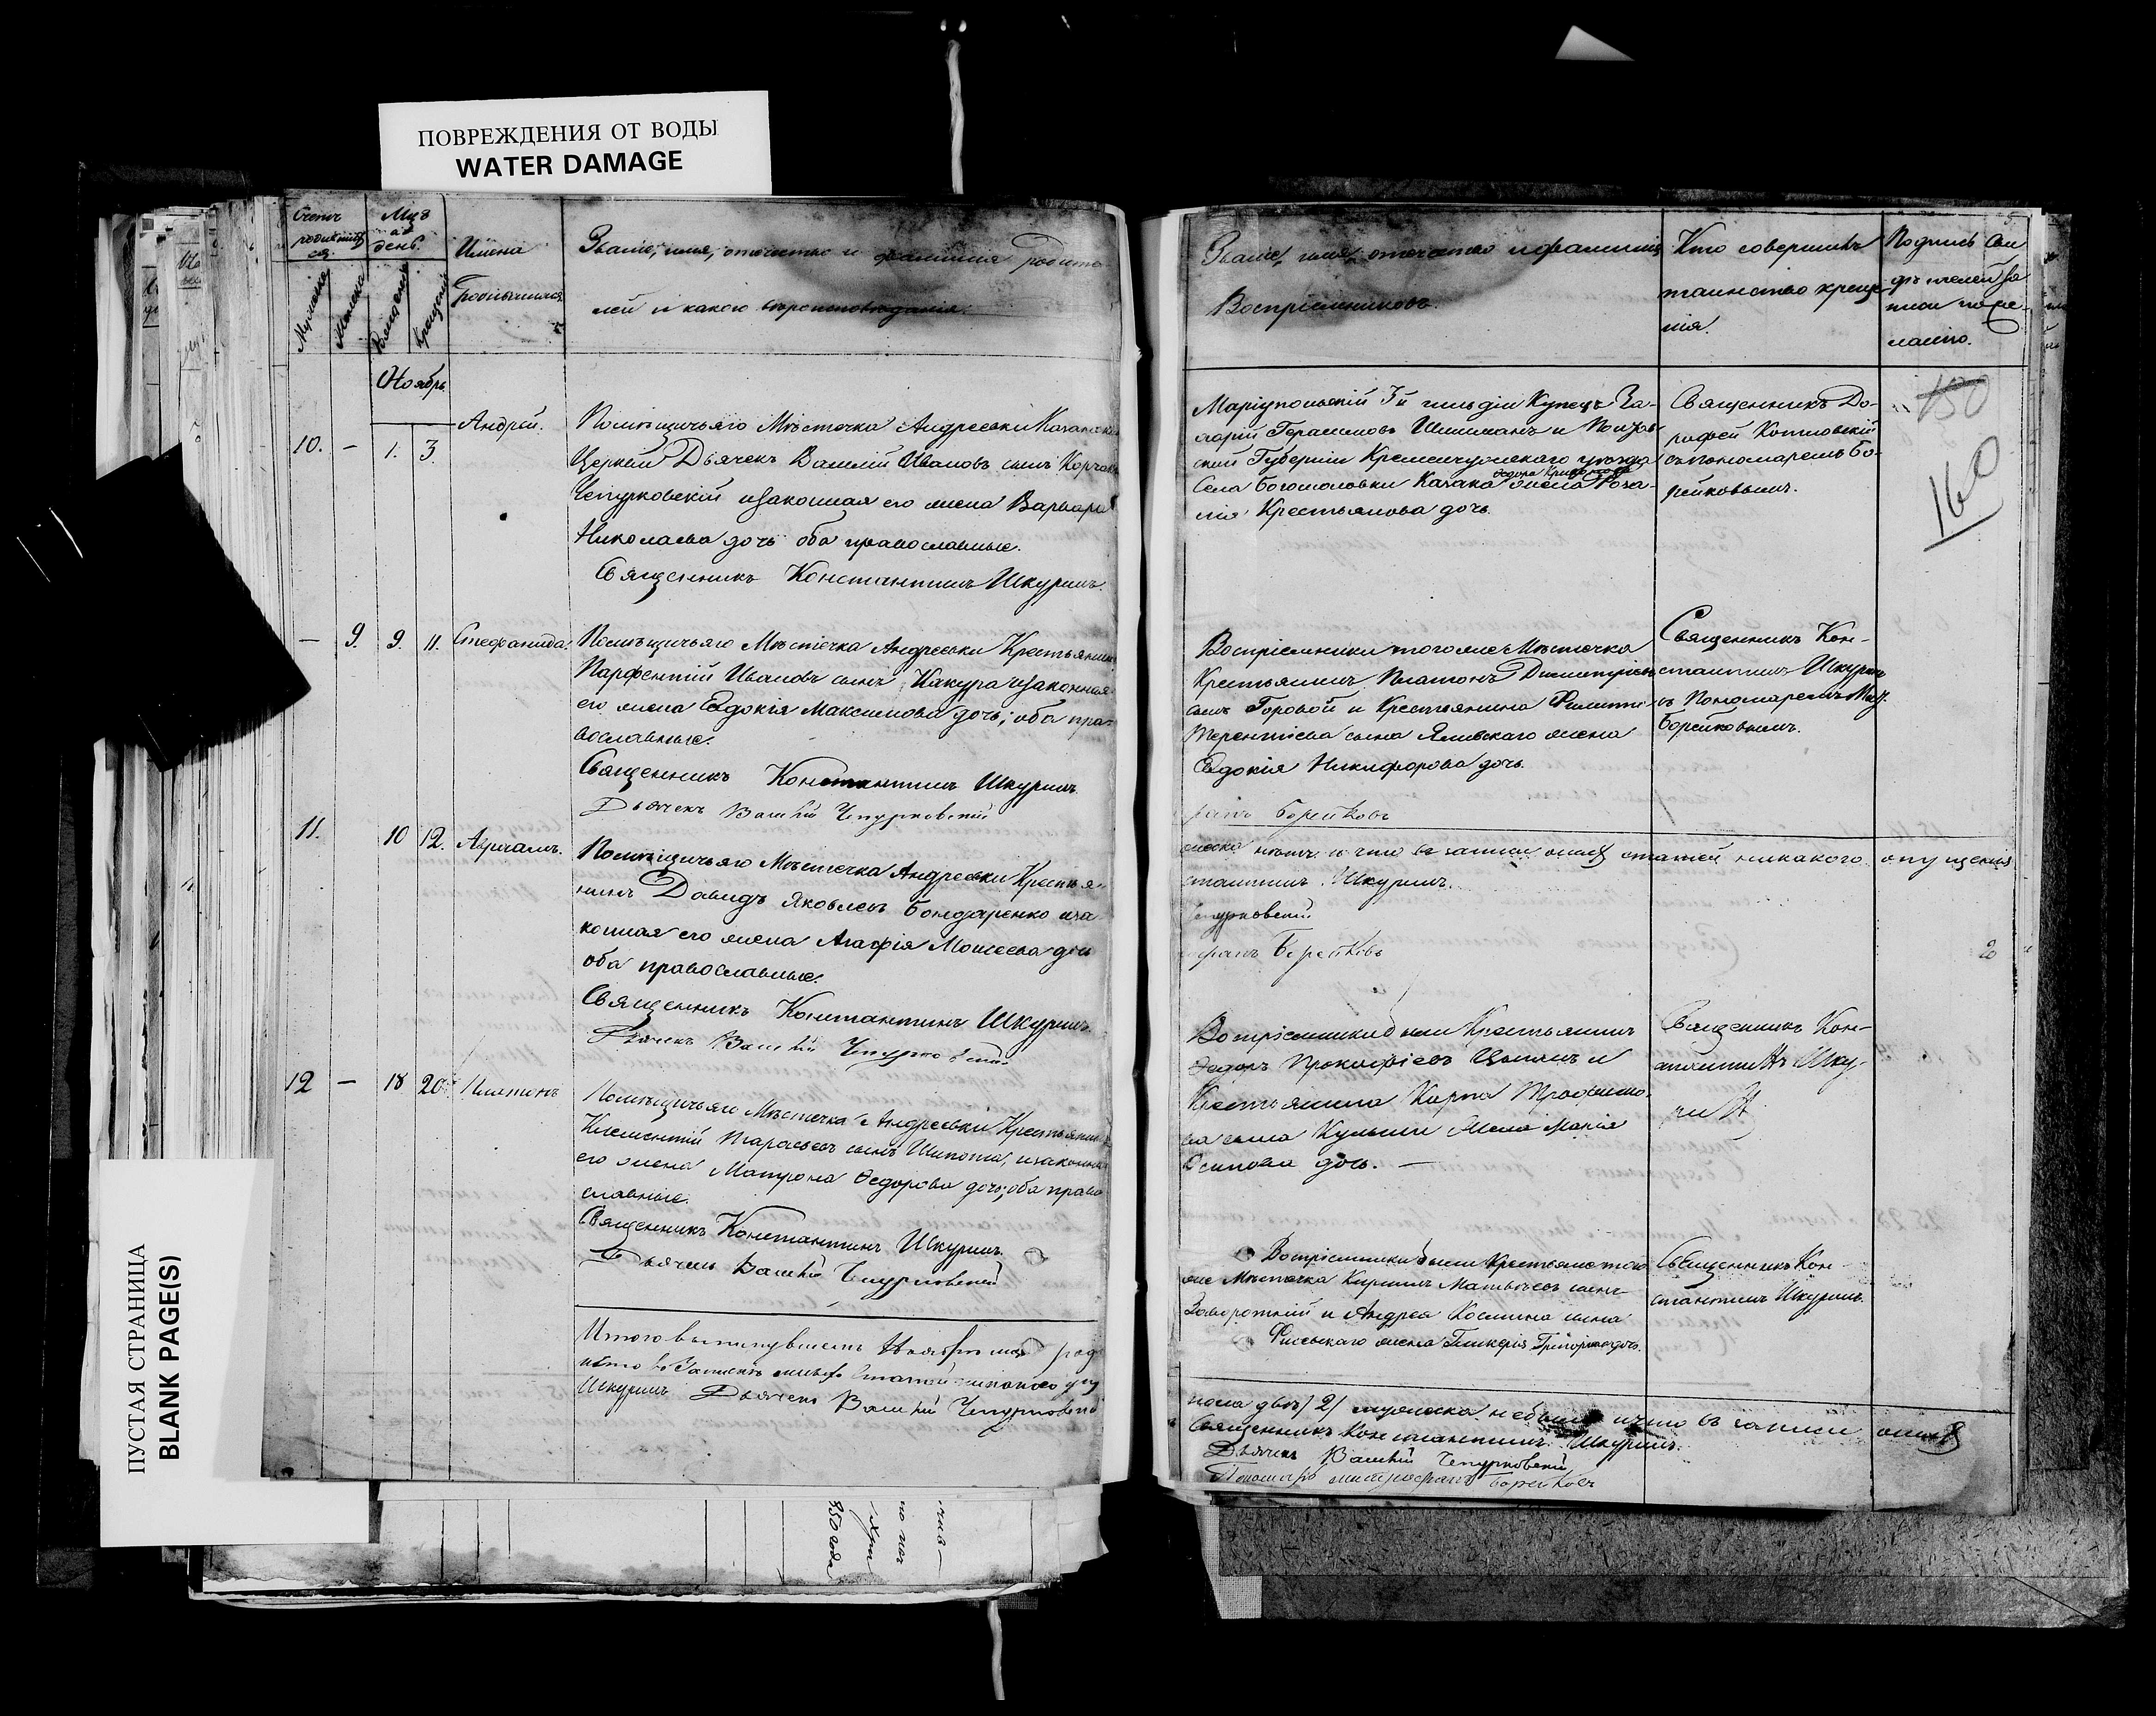 ПОВРЕЖДЕНИЯ ОТ ВОДЫ
WATER DAMAGE
Счетъ
родивших
ся.
Мужеска
Женска
Мцъ
и
день.
Рожденія
Крещенія
Имена
Родившихся
Званіе, имя, отечество и фамилія Родите-
лей и какого вѣроисповѣданія.
Ноябрь
10. — 1. 3. Андрей.
Помѣщичьяго Мѣстечка Андреевки
Церкви Дьячекъ Василій Ивановъ сынъ
Чепурковскій и законная его жена Варвара
Николаева дочь оба православные.
Священникъ Константинъ Шкуринъ.
— 9. 9. 11. Стефанида.
Помѣщичьяго Мѣстечка Андреевки Крестьянинъ
Парфентій Ивановъ сынъ Какура и законная
его жена Евдокія Максимова дочь; оба пра-
вославные.
Священникъ Константинъ Шкуринъ.
Дьячекъ Василій Чепурковскій
11. 10 12. Авраамъ.
Помѣщичьяго Мѣстечка Андреевки Крестья-
нинъ Давидъ Яковлевъ Бондаренко и за
конная его жена Агафія Моисеева дочь
оба православные.
Священникъ Константинъ Шкуринъ.
Дьячекъ Василій Чепурковскій
12 — 18 20 Платонъ
Помѣщичьяго Мѣстечка Андреевки Крестьянинъ
Климентій Тарасьевъ сынъ Шипота, и законная
его жена Матрона Ѳедорова дочь; оба право
славные.
Священникъ Константинъ Шкуринъ.
Дьячекъ Василій Чепурковскій
Итого въ Ноябрѣ род
Шкуринъ Дьячекъ Василій Чепурковскій
ПУСТАЯ СТРАНИЦА
BLANK PAGE(S)
Званіе, имя, отечество и фамилія
Воспріемниковъ.
Кто совершилъ
таинство креще-
нія.
Подпись сви
дѣтелей за
писи по же-
ланію.
Маріупольскій 3й гильдіи Купецъ За-
харій Герасимовъ Шишманъ и Полтав
ской Губерніи Кременчугскаго уѣзда
Села Богомоловки Казака жена Роза-
лія Крестьянова дочь.
Священникъ До-
рофей Котловскій
съ пономаремъ Бо-
рейковымъ.
150
160
Воспріемники тогоже Мѣстечка
Крестьянинъ Платонъ Димитріевъ
сынъ Горовой и Крестьянина Филиппа
Терентіева сына Яливскаго жена
Евдокія Никифорова дочь.
Священникъ Кон-
стантинъ Шкуринъ
съ Пономаремъ Мит.
Борейковымъ.
фанъ Борейковъ
женска нѣтъ и что въ записи оныхъ статей никакого опущенія
стантинъ Шкуринъ.
Чепурковскій
фанъ Борейковъ
2
Воспріемники были Крестьянинъ
Ѳедоръ Прокофіевъ Цыганъ и
Крестьянина Карпа Трофимо-
ва сына Кульши жена Марія
Осипова дочь. —
Священникъ Кон-
стантинъ Шку-
ринъ
Воспріемники были Крестьяне того
же Мѣстечка Кириллъ Матвѣевъ сынъ
Заворотній и Андрея Космина сына
жена Гликерія Григорьева дочь.
Священникъ Кон-
стантинъ Шкуринъ.
пола двѣ /2/ мужеска небыло и что въ записи оныхъ
Священникъ Константинъ Шкуринъ.
Дьячекъ Василій Чепурковскій
Пономарь Митрофанъ Борейковъ